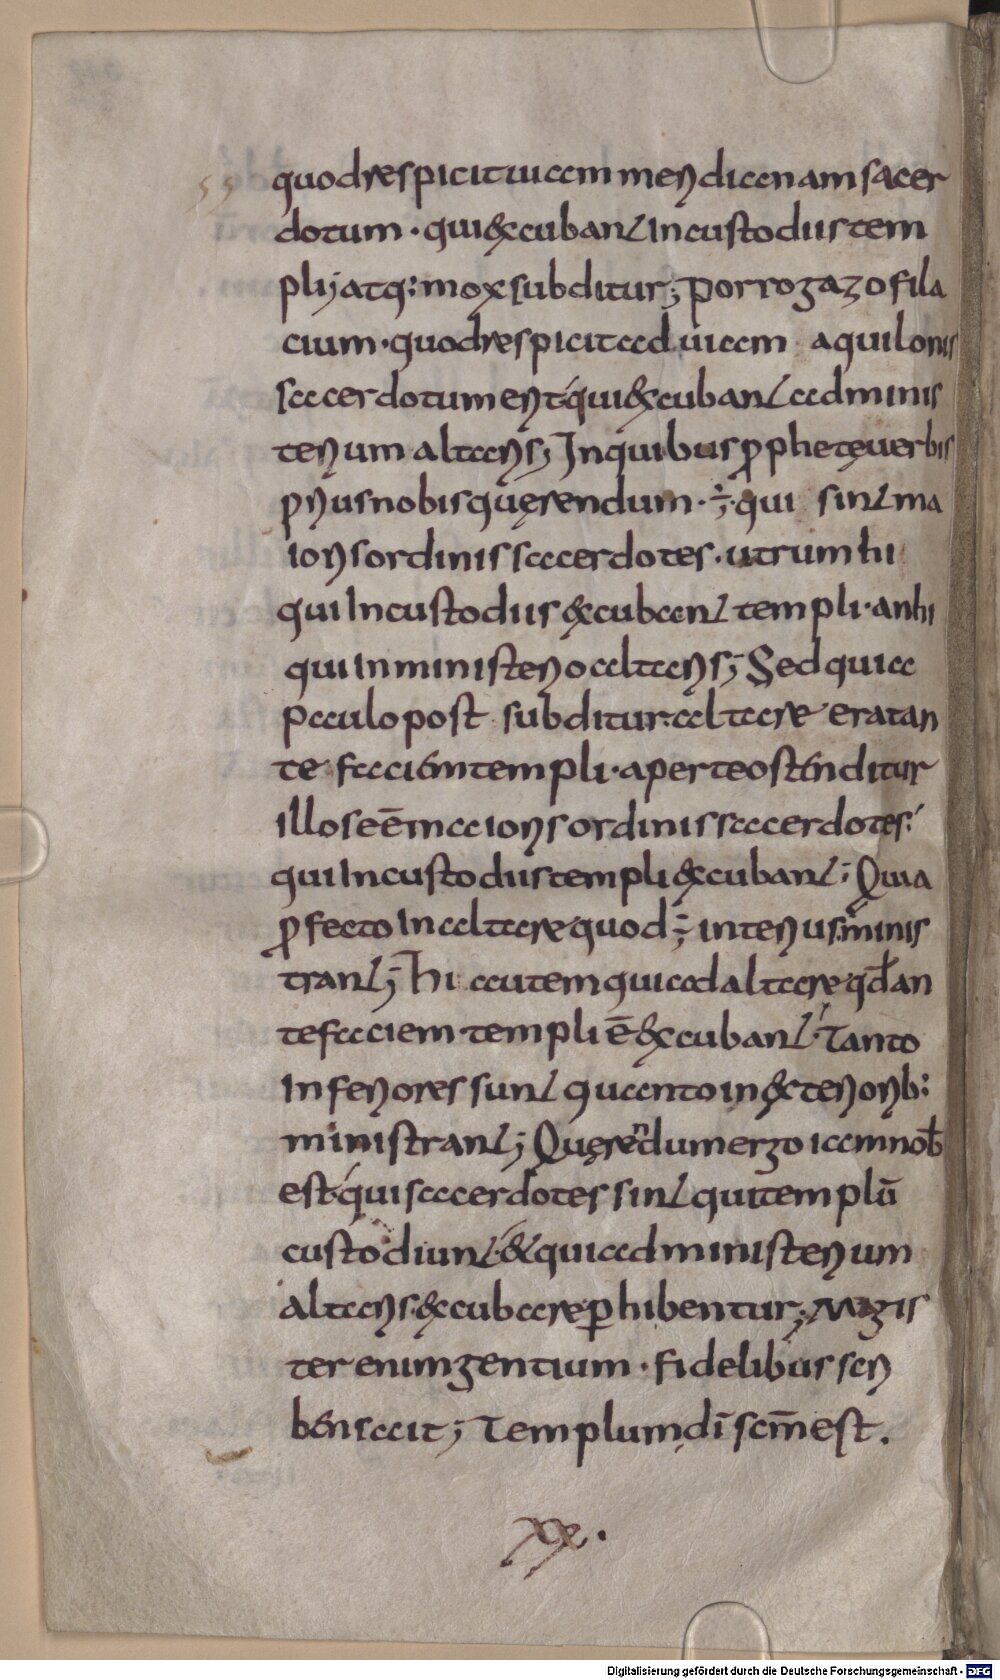 quod respicit uiam meridianam sacer
dotum · qui excubant in custodiis tem
pli; atq: mox subditur; Porro gazofila
cium · quod respicit ad uiam aquilonis
sacerdotum erit qui excubant ad minis
terium altaris; In quibus ꝓphetę uerbis
prius nobis quęrendum · ÷ · qui sint ma
ioris ordinis sacerdotes · utrum hi
qui in custodiis excubant templi · an hi
qui in ministerio altaris; Sed quia
paulo post subditur · altare erat an
te faciem templi · aperte ostenditur
illos eē maioris ordinis sacerdotes ·
qui in custodiis templi excubant; Quia
ꝓfecto in altare quod ÷ interius minis
trant; hi autem qui ad altare qđ an
te faciem templi ē excubant · Tanto
inferiores sunt quanto in exteriorib:
ministrant; Quęrendum ergo iam nob̄
est qui sacerdotes sint qui templū
custodiunt · et qui ad ministerium
altaris excubare ꝑhibentur; Magis
ter enim gentium · fidelibus scri
bens ait; Templum dī scm̄ est.
xx ·
Digitalisierung gefördert durch die Deutsche Forschungsgemeinschaft - DFG